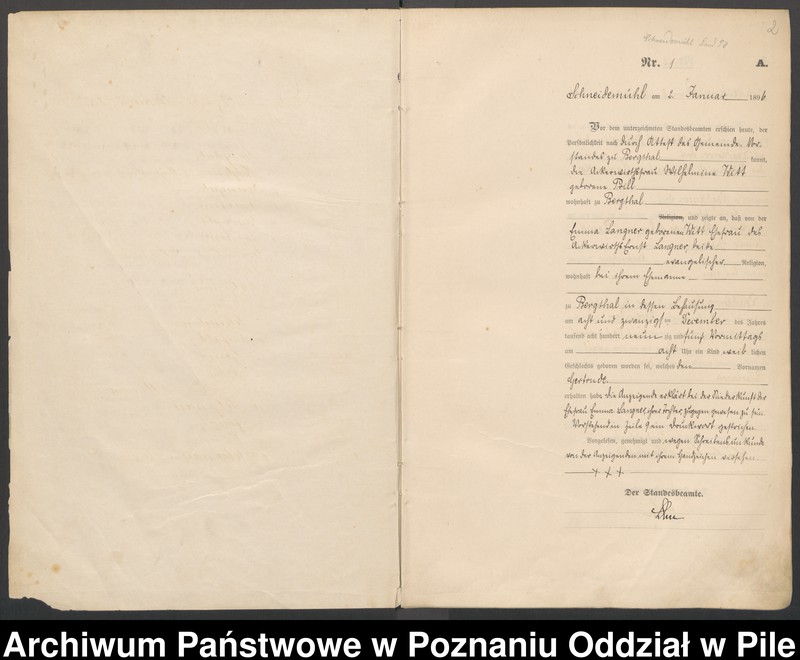 2
Schneidemühl
Nr. 1
A.
Schneidemühl am 2. Januar 1896
Vor dem unterzeichneten Standesbeamten erschien heute, der
Persönlichkeit nach durch Attest des Gemeinde Vor-
standes zu Bergthal kannt,
die Ackerwirthsfrau Wilhelmine Witt
geborene Prill
wohnhaft zu Bergthal
Religion, und zeigte an, daß von der
Emma Langner geborenen Witt Ehefrau des
Ackerwirths Ernst Langner beide
evangelischer Religion,
wohnhaft bei ihrem Ehemanne
zu Bergthal in dessen Behausung
am acht und zwanzigsten Dezember des Jahres
tausend acht hundert neunzig und fünf Vormittags
um acht Uhr ein Kind weiblichen
Geschlechts geboren worden sei, welches den Vornamen
Gertrude
erhalten habe. Die Anzeigende erklärt bei der Niederkunft der
Ehefrau Emma Langner, ihrer Tochter, zugegen gewesen zu sein.
Vorstehend in Zeile 9 ein Druckwort gestrichen.
Vorgelesen, genehmigt und wegen Schreibensunkunde
von der Anzeigenden mit ihrem Handzeichen versehen.
+ + +
Der Standesbeamte.
Archiwum Państwowe w Poznaniu Oddział w Pile